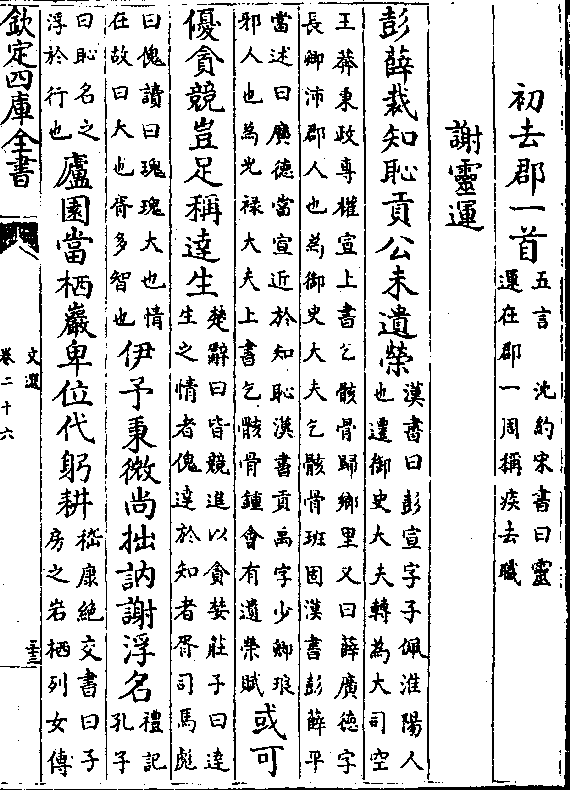 初去郡一首
五言　沈約宋書曰靈
運在郡一周稱疾去職
謝靈運
彭薛裁知恥貢公未遺榮
漢書曰彭宣字子佩淮陽人
也遷御史大夫轉為大司空
王莽秉政專權宣上書乞骸骨歸鄉里又曰薛廣德字
長卿沛郡人也為御史大夫乞骸骨班固漢書彭薛平
當述曰廣德當宣近於知恥漢書貢禹字少卿琅
邪人也為光禄大夫上書乞骸骨鍾會有遺榮賦
或可
優貪競豈足稱達生
楚辭曰皆競進以貪婪莊子曰達
生之情者傀達於知者胥司馬彪
曰傀讀曰瑰瑰大也情
在故曰大也胥多智也
伊予秉微尚拙訥謝浮名
禮記
孔子
曰恥名之
浮於行也
廬園當栖巖卑位代躬耕
嵇康絶交書曰子
房之岩栖列女傳
欽定四庫全書
文選
卷二十六
二十三